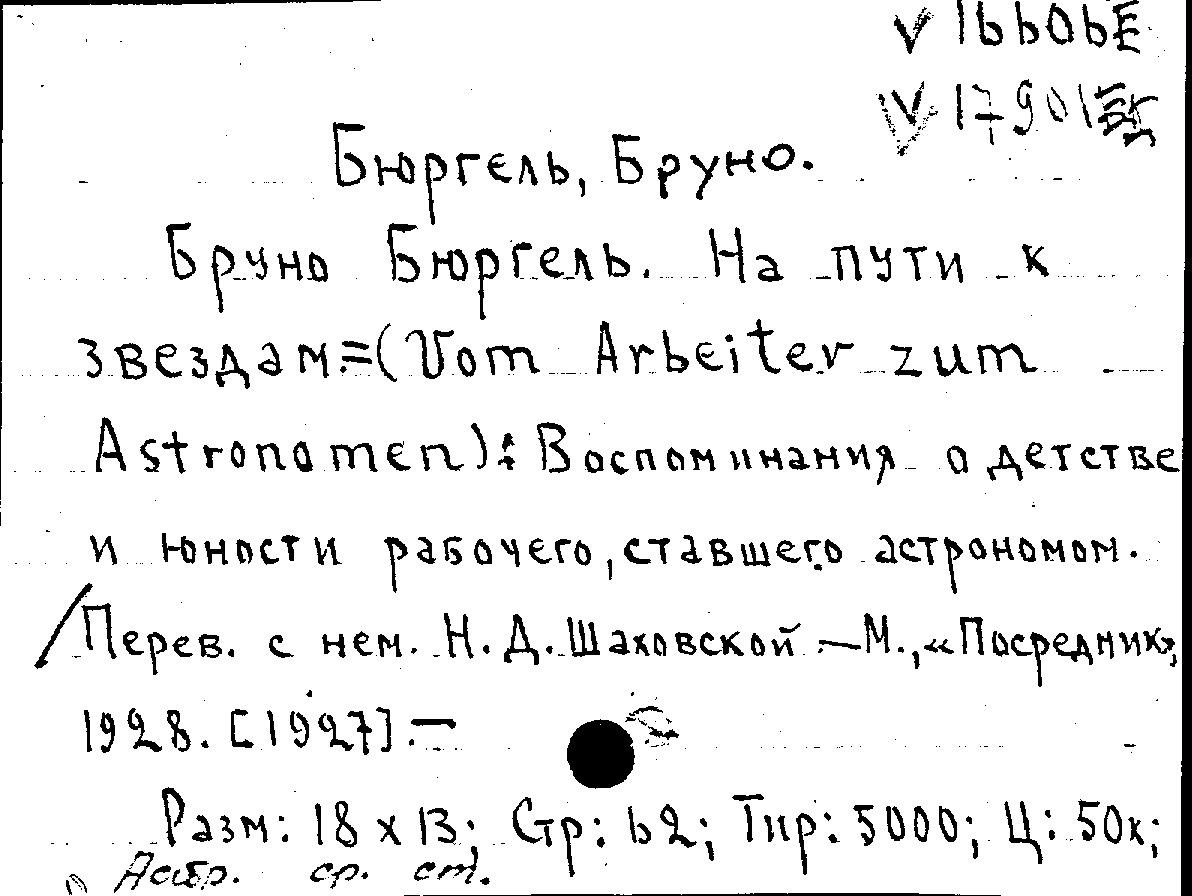 V 16606Е
V 17901
Бюргель, Бруно.
Бруно Бюргель. На пути к
звездам.=(Vom Arbeiter zum
Astronomen): Воспоминания о детстве
и юности рабочего, ставшего астрономом.
/Перев. с нем. Н. Д. Шаховской.—М., «Посредник»,
1928. [1927].—
Разм: 18 x 13; Стр: 62; Тир: 5000; Ц: 50к;
ср. ст.